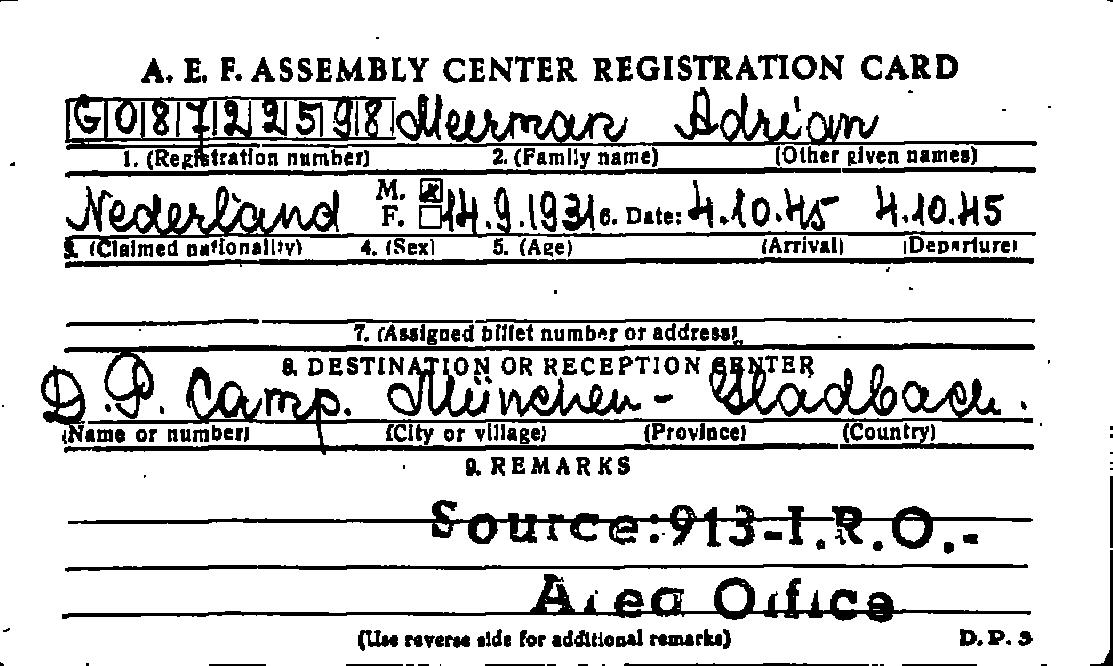 A. E. F. ASSEMBLY CENTER REGISTRATION CARD
G 0 8 7 2 2 5 9 8 Meerman Adrian
1. (Registration number) 2. (Family name) (Other given names)
Nederland M. ☒ F. ☐ 14.9.1931 6. Date: 4.10.45 4.10.45
3. (Claimed nationality) 4. (Sex) 5. (Age) (Arrival) (Departure)
7. (Assigned billet number or address)
8. DESTINATION OR RECEPTION CENTER
D.P. Camp. München - Gladbach.
(Name or number) (City or village) (Province) (Country)
9. REMARKS
Source:913-I.R.O.-
Area Office
(Use reverse side for additional remarks) D. P. 3